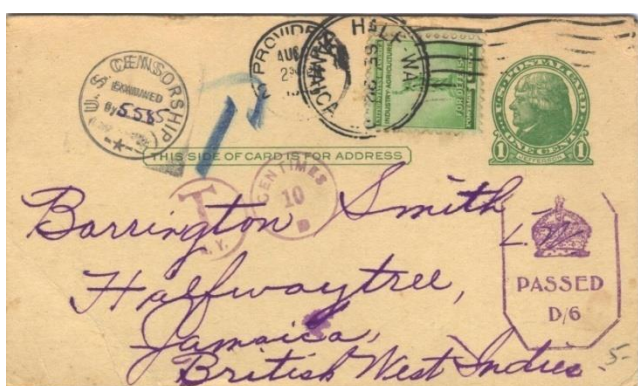 U.S. CENSORSHIP
EXAMINED
By 5585
PROVIDE
AUG
HALF WA
JAMAICA
INDUSTRY AGRICULTURE
U.S. POSTAL CARD
1 ONE CENT 1
JEFFERSON
THIS SIDE OF CARD IS FOR ADDRESS
T
N.Y.
CENTIMES
10
Barrington Smith
Halfwaytree,
Jamaica,
British West Indies
PASSED
D/6
5-